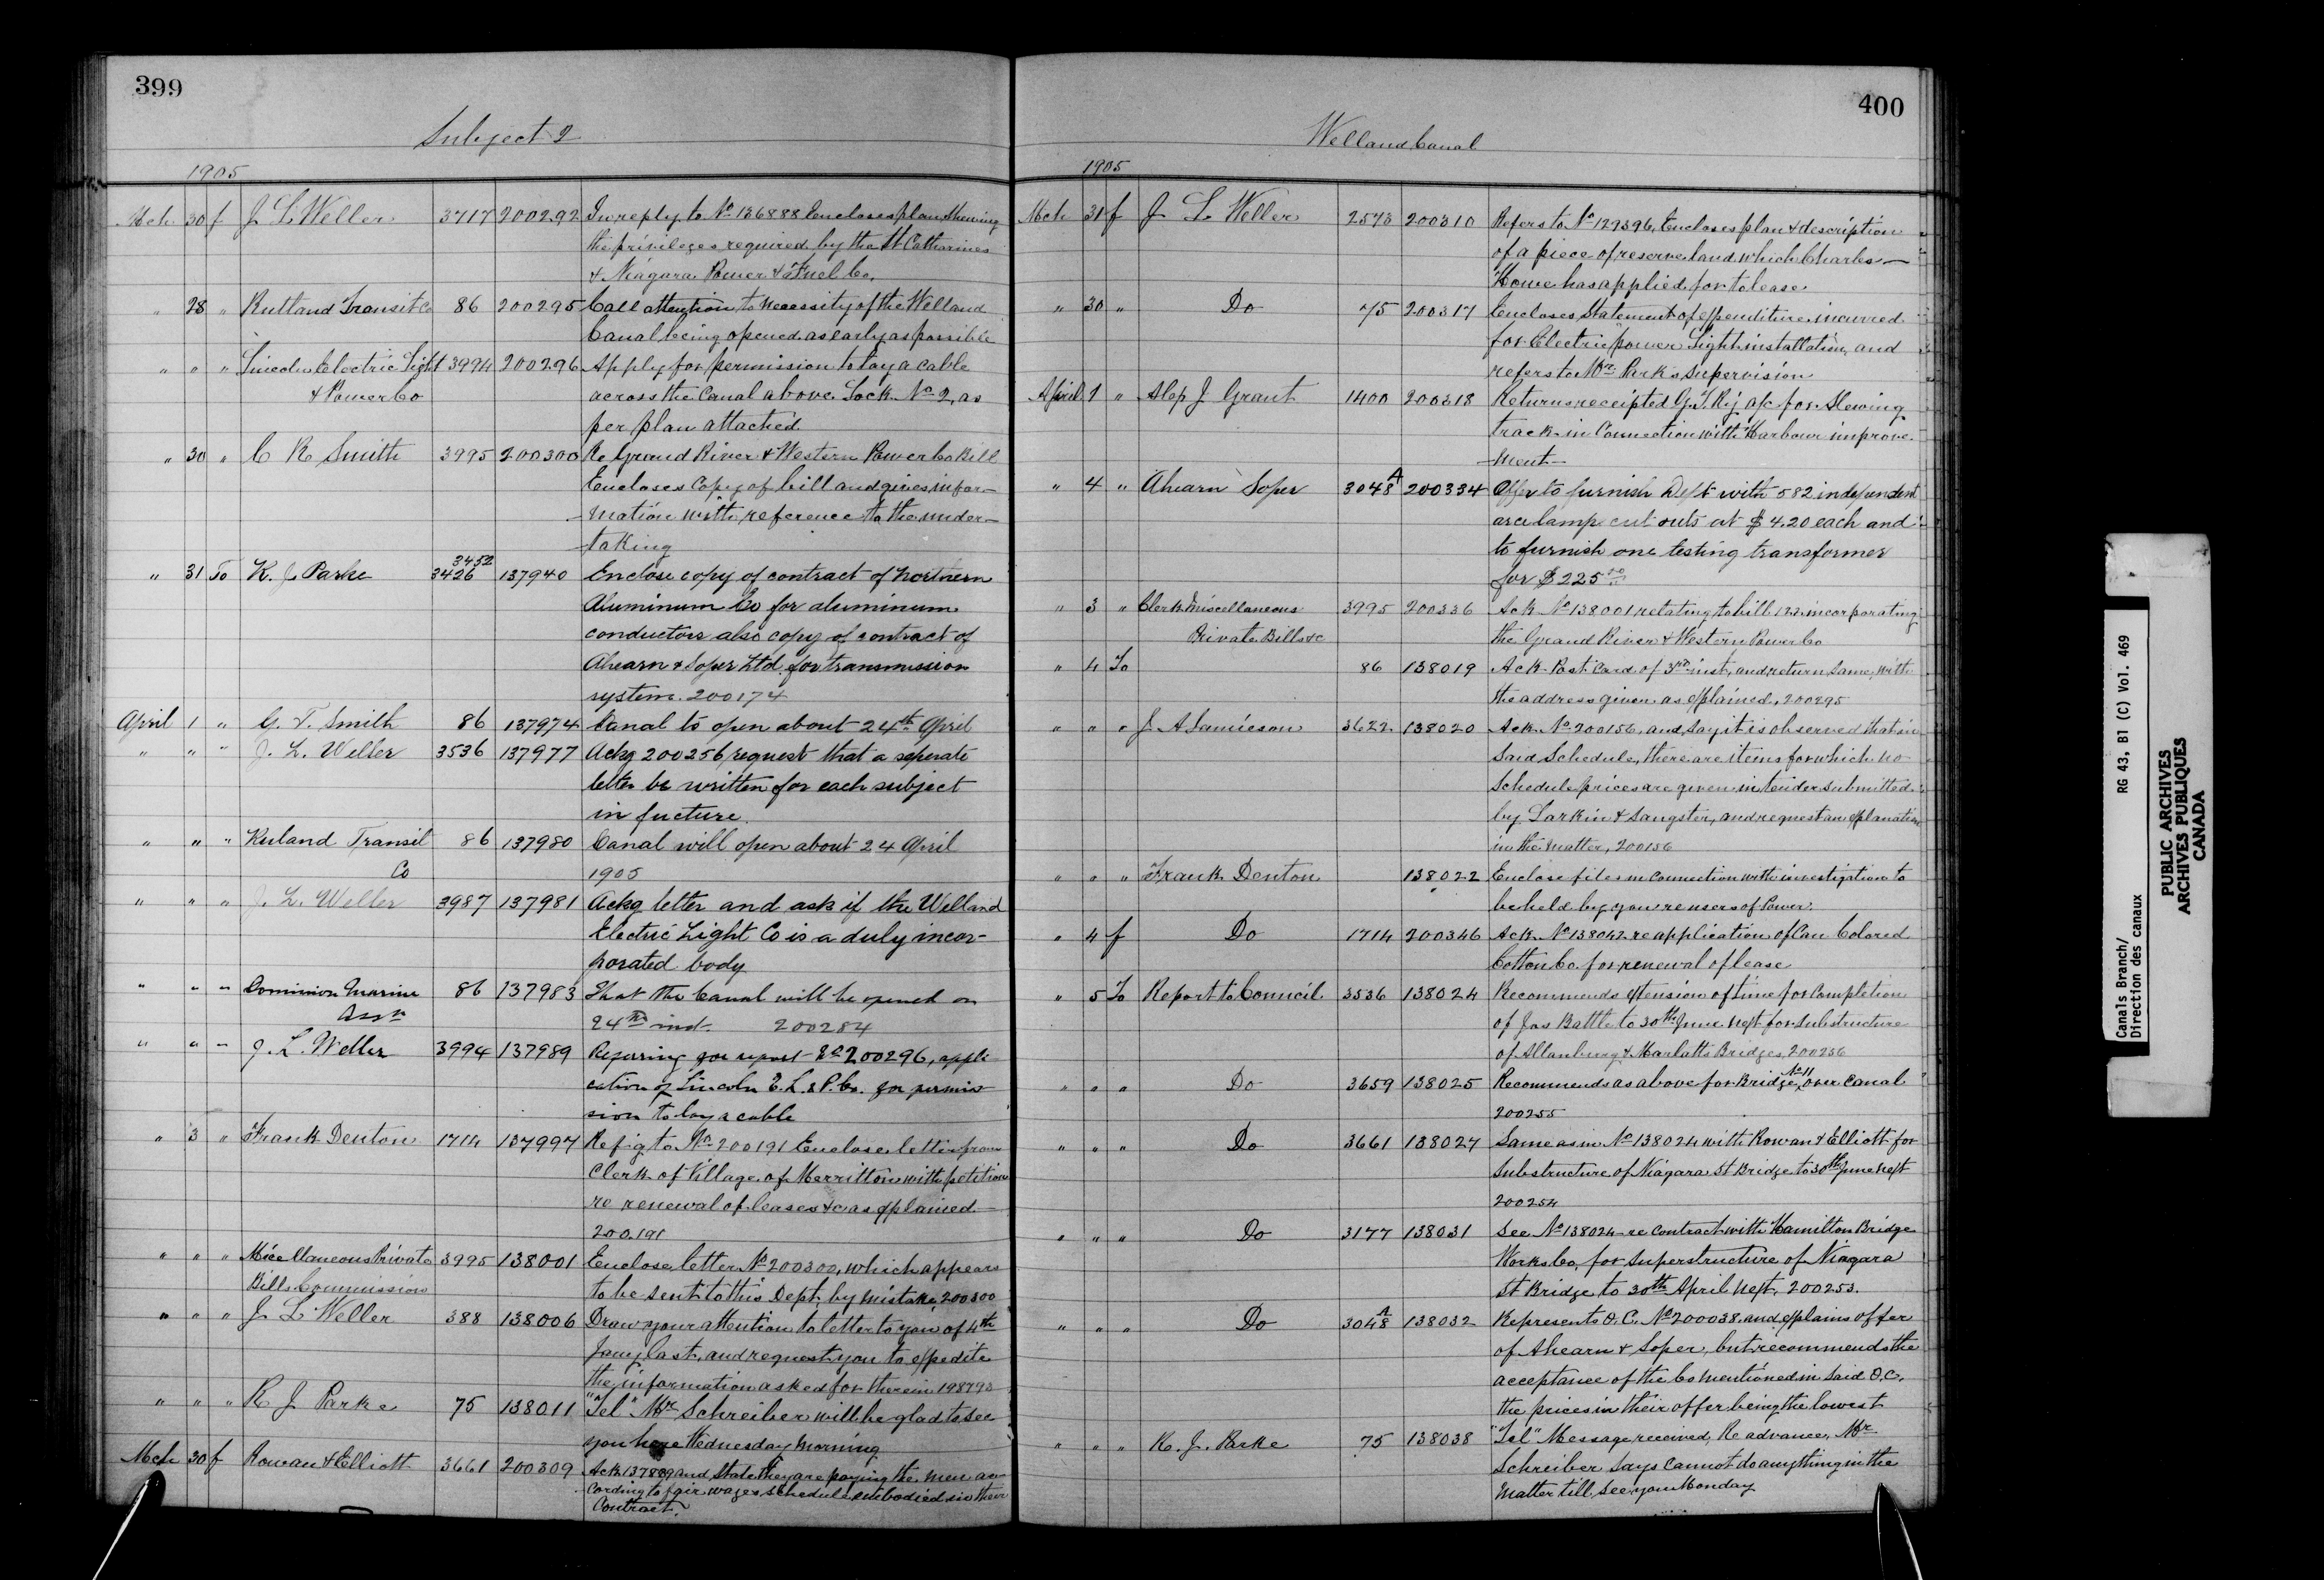 399
Subject 2
1905
Mch 30 f J L Weller 3717 200292 In reply to No 136888 Encloses plan Shewing
the privileges required by the St Catharines
& Niagara Power & Fuel Co.
" 28 " Rutland Transit Co 86 200295 Call attention to necessity of the Welland
Canal being opened as early as possible
" " " Lincoln Electric Light 3994 200296 Apply for permission to lay a cable
& Power Co across the Canal above Lock No 2, as
per plan attached
" 30 " C R Smith 3995 200300 Re Grand River & Western Power Co Bill
Encloses Copy of bill and gives infor-
-mation with reference to the under-
-taking
3452
" 31 To K. J. Parke 3426 137940 Enclose copy of contract of Northern
Aluminum Co for aluminum
conductors also copy of contract of
Ahearn & Soper Ltd. for transmission
system. 200174
April 1 " G. T. Smith 86 137974 Canal to open about 24th April
" " " J. L. Weller 3536 137977 Ackg 200256 request that a seperate
letter be written for each subject
in fucture.
" " " Ruland Transit 86 137980 Canal will open about 24 April
Co 1905
" " " J. L. Weller 3987 137981 Ackg letter and ask if the Welland
Electric Light Co is a duly incor-
porated body
" " " Dominion Marine 86 137983 That the Canal will be opened on
Assn 24th inst. 200284
" " " J. L. Weller 3994 137989 Referring for report No 200296, appli
cation of Lincoln E. L. & P. Co. for permis-
sion to lay a cable
" 3 " Frank Denton 1714 137997 Refig to No 200191 Enclose letter from
Clerk of Village of Merritton with petition
re renewal of leases &c as explained
200191
" " " Micellaneous Private 3995 138001 Enclose letter No 200300, which appears
Bills Commission to be sent to this Dept. by mistake, 200300
" " " J L Weller 388 138006 Draw your attention to letter to you of 4th
Jany last, and request you to expedite
the information asked for therein 198793
" " " R J Parke 75 138011 "Tel" Mr Schreiber will be glad to see
you here Wednesday Morning
Mch 30 f Rowan & Elliott 3661 200309 Ack 137889 and State they are paying the men ac-
cording to fair wages schedule embodied in their
Contract.
400
Welland Canal
1905
Mch 31 f J L Weller 2573 200310 Refers to No 129396, Encloses plan & description
of a piece of reserve land which Charles
Howe has applied for to lease
" 30 " Do 75 200317 Encloses Statement of expenditure incurred
for Electric power Light installation, and
refers to Mr Park's supervision
April 1 " Alex J Grant 1400 200318 Returns receipted G. T. Ry a/c for Slewing
track in Connection with Harbour improve-
-ment-
" 4 " Ahearn Soper 3048 A 200334 Offer to furnish Dept with 582 independent
arc lamp cut outs at $4.20 each and
to furnish one testing transformer
for $225.00
" 3 " Clerk Miscellaneous 3995 200336 Ack No 138001 relating to bill 122 incorporating
Private Bills &c the Grand River & Western Power Co
" 4 To 86 138019 Ack Post Card of 3rd inst, and return same, with
the address given as explained, 200295
" " " J. A Jamieson 3622 138020 Ack No 200156, and say it is observed that in
Said Schedule, there are items for which no
Schedule prices are given in tender submitted
by Larkin & Sangster, and request an explanation
in the matter, 200156
" " " Frank Denton 138022 Enclose files in connection with investigation to
be held by you re users of Power.
" 4 f Do 1714 200346 Ack No 138042 re application of Can Colored
Cotton Co. for renewal of lease
" 5 To Report to Council 3536 138024 Recommends extension of time for Completion
of Jas Battle to 30th June next for Substructure
of Allanburg & Marlatts Bridges, 200256
" " " Do 3659 138025 Recommends as above for Bridge No 11 over Canal
200255
" " " Do 3661 138027 Same as in No 138024 with Rowan & Elliott for
Substructure of Niagara St Bridge to 30th June next
200254
" " " Do 3177 138031 See No 138024 re Contract with Hamilton Bridge
Works Co, for Superstructure of Niagara
St Bridge to 30th April next. 200253.
" " " Do 3048 A 138032 Represents O. C. No 200038, and explains offer
of Ahearn & Soper, but recommends the
acceptance of the Co mentioned in said O.C.
the prices in their offer being the lowest
" " " K. J. Parke 75 138038 "Tel" Message received, Re advance, Mr
Schreiber Says Cannot do anything in the
Matter till see you Monday
Canals Branch/ RG 43, B1 (C) Vol. 469
Direction des canaux
PUBLIC ARCHIVES
ARCHIVES PUBLIQUES
CANADA